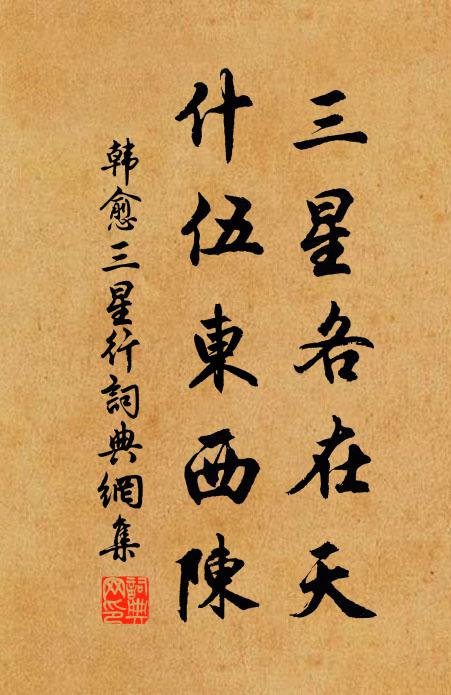 三星各在天
什伍東西陳
韩愈三星行詞典網集
詞典网印